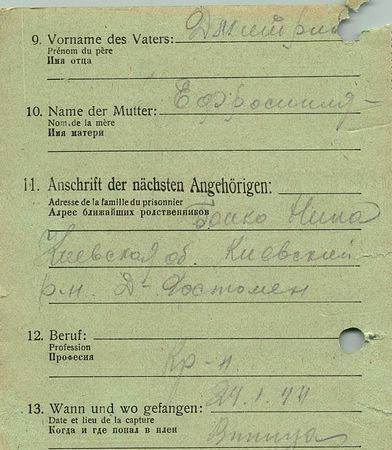 9. Vorname des Vaters: Дмитрий
Prénom du père
Имя отца
10. Name der Mutter: Ефросиния
Nom de la mère
Имя матери
11. Anschrift der nächsten Angehörigen:
Adresse de la famille du prisonnier
Алрес ближайших ролственников Бойко Нина
Киевская об. Киевский
р-н. Д- Гостомел
12. Beruf:
Profession
Професия Кр-н
13. Wann und wo gefangen: 24.1.44
Date et lieu de la capture
Когда и где попал в плен Виница